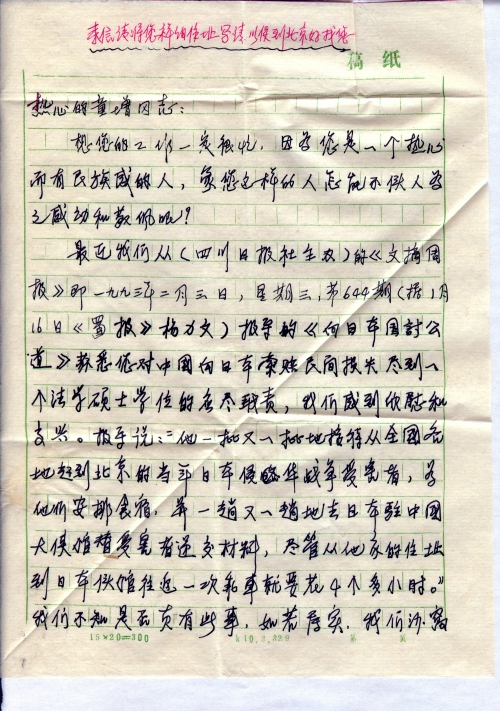 来信请将您详细住址写清以便到北京好找您
稿纸
热心的童增同志：
想您的工作一定很忙，因为您是一个热心
而有民族感的人，象您这样的人怎能不做人为
之感动和敬佩呢？
最近我们从（四川日报社主办）的《文摘周
报》即一九九三年二月三日，星期三，第644期（摘1月
16日《蜀报》杨力文）报导的《向日本国讨公
道》获悉您对中国向日本索赔民间损失尽到一
个法学硕士学位的名尽职责，我们感到欣慰和
高兴。报导说："他一批又一批地接待从全国各
地赶到北京的当年日本侵略华战争受害者，为
他们安排食宿，并一趟又一趟地去日本驻中国
大使馆替受害者递交材料，尽管从他家的住址
到日本使馆往返一次乘车就要花4个多小时。"
我们不知是否真有此事，如若属实，我们
15×20=300
第 页